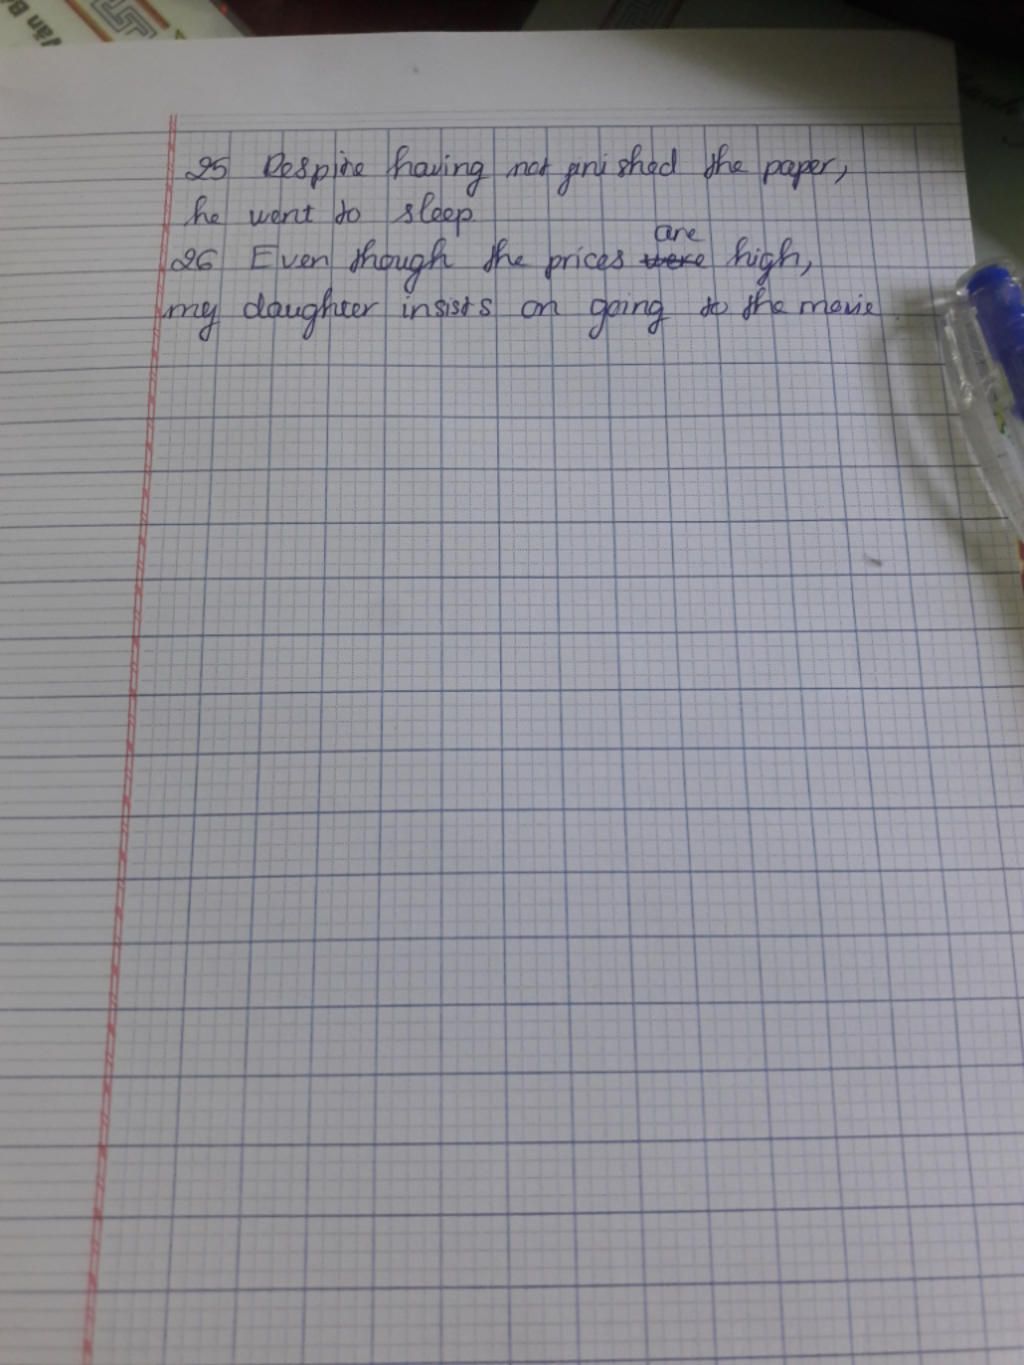 25 Despite having not finished the paper,
he went to sleep
26 Even though the prices are high,
my daughter insists on going to the movie